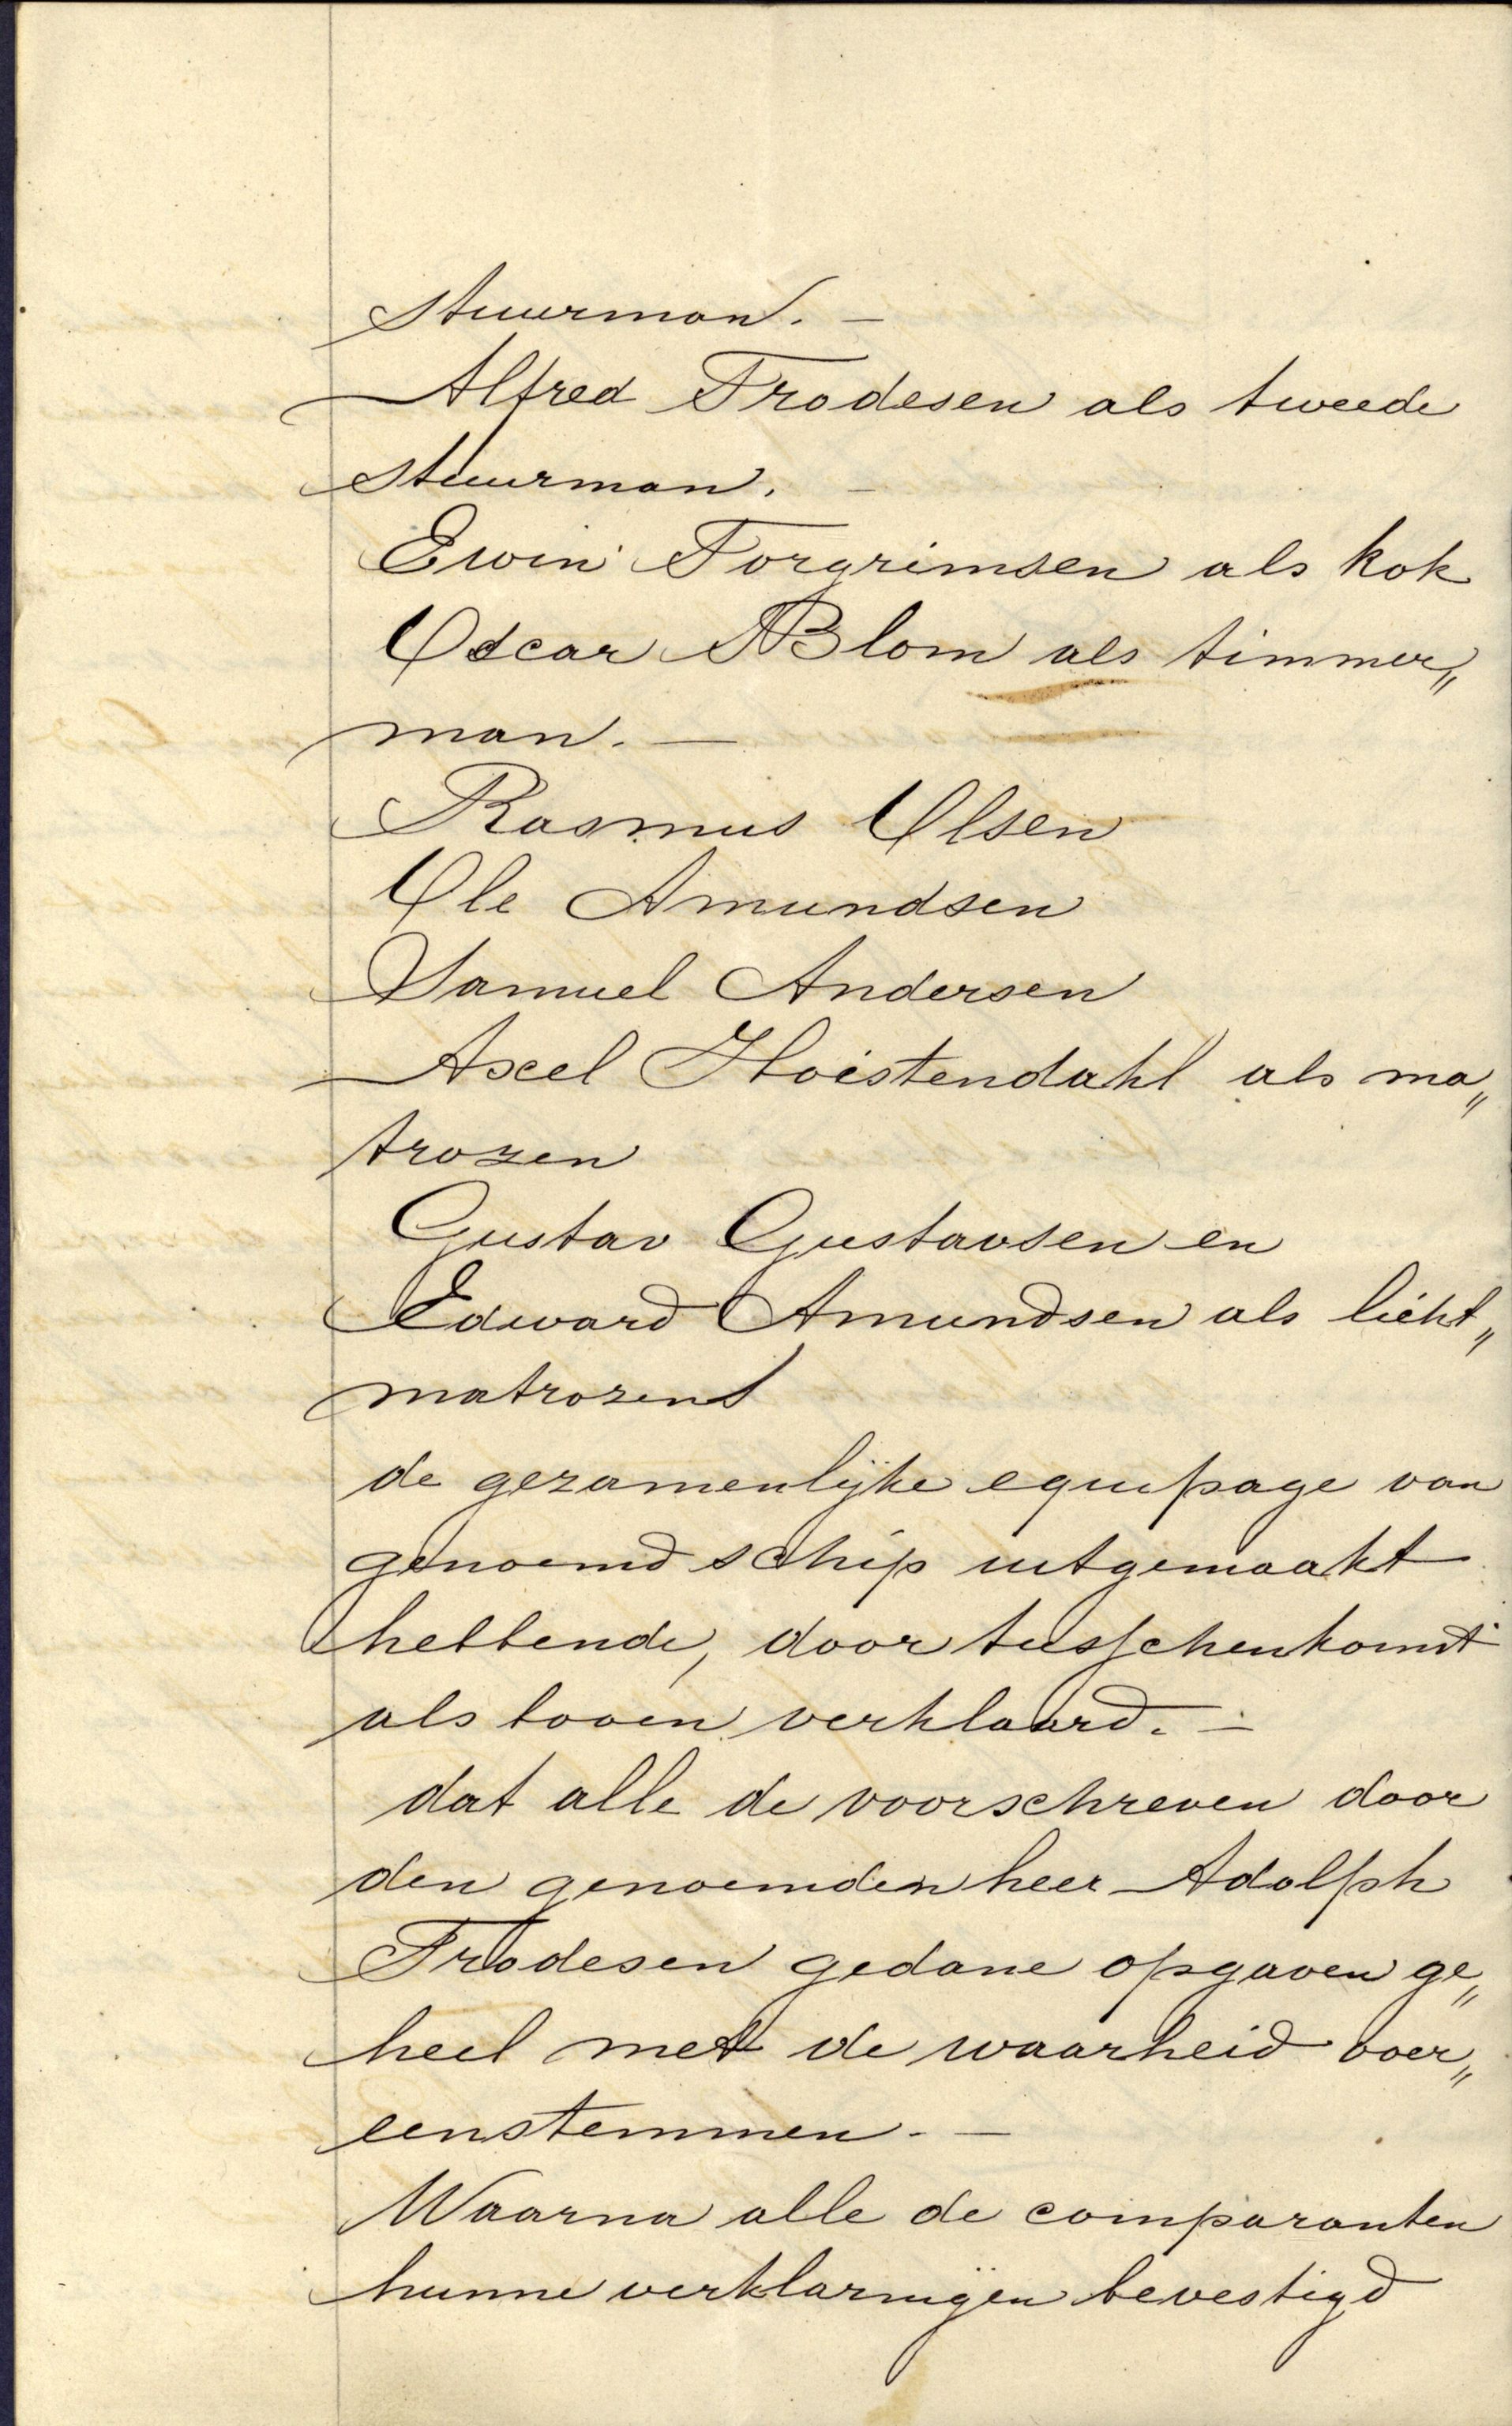 stuurman. —
Alfred Frodesen als tweede
stuurman. —
Ewin Torgrimsen als kok
Oscar Blom als timmer„
man. —
Rasmus Olsen
Ole Amundsen
Samuel Andersen
Axel Hoistendahl als ma„
trozen
Gustav Gustavsen en
Edward Amundsen als licht„
matrozen
de gezamenlijke equipage van
genoemd schip uitgemaakt
hebbende, door tusschenkomst
als boven verklaard. —
dat alle de voorschreven door
den genoemden heer Adolph
Frodesen gedane opgaven ge„
heel met de waarheid over„
eenstemmen. —
Waarna alle de comparanten
hunne verklaringen bevestigd